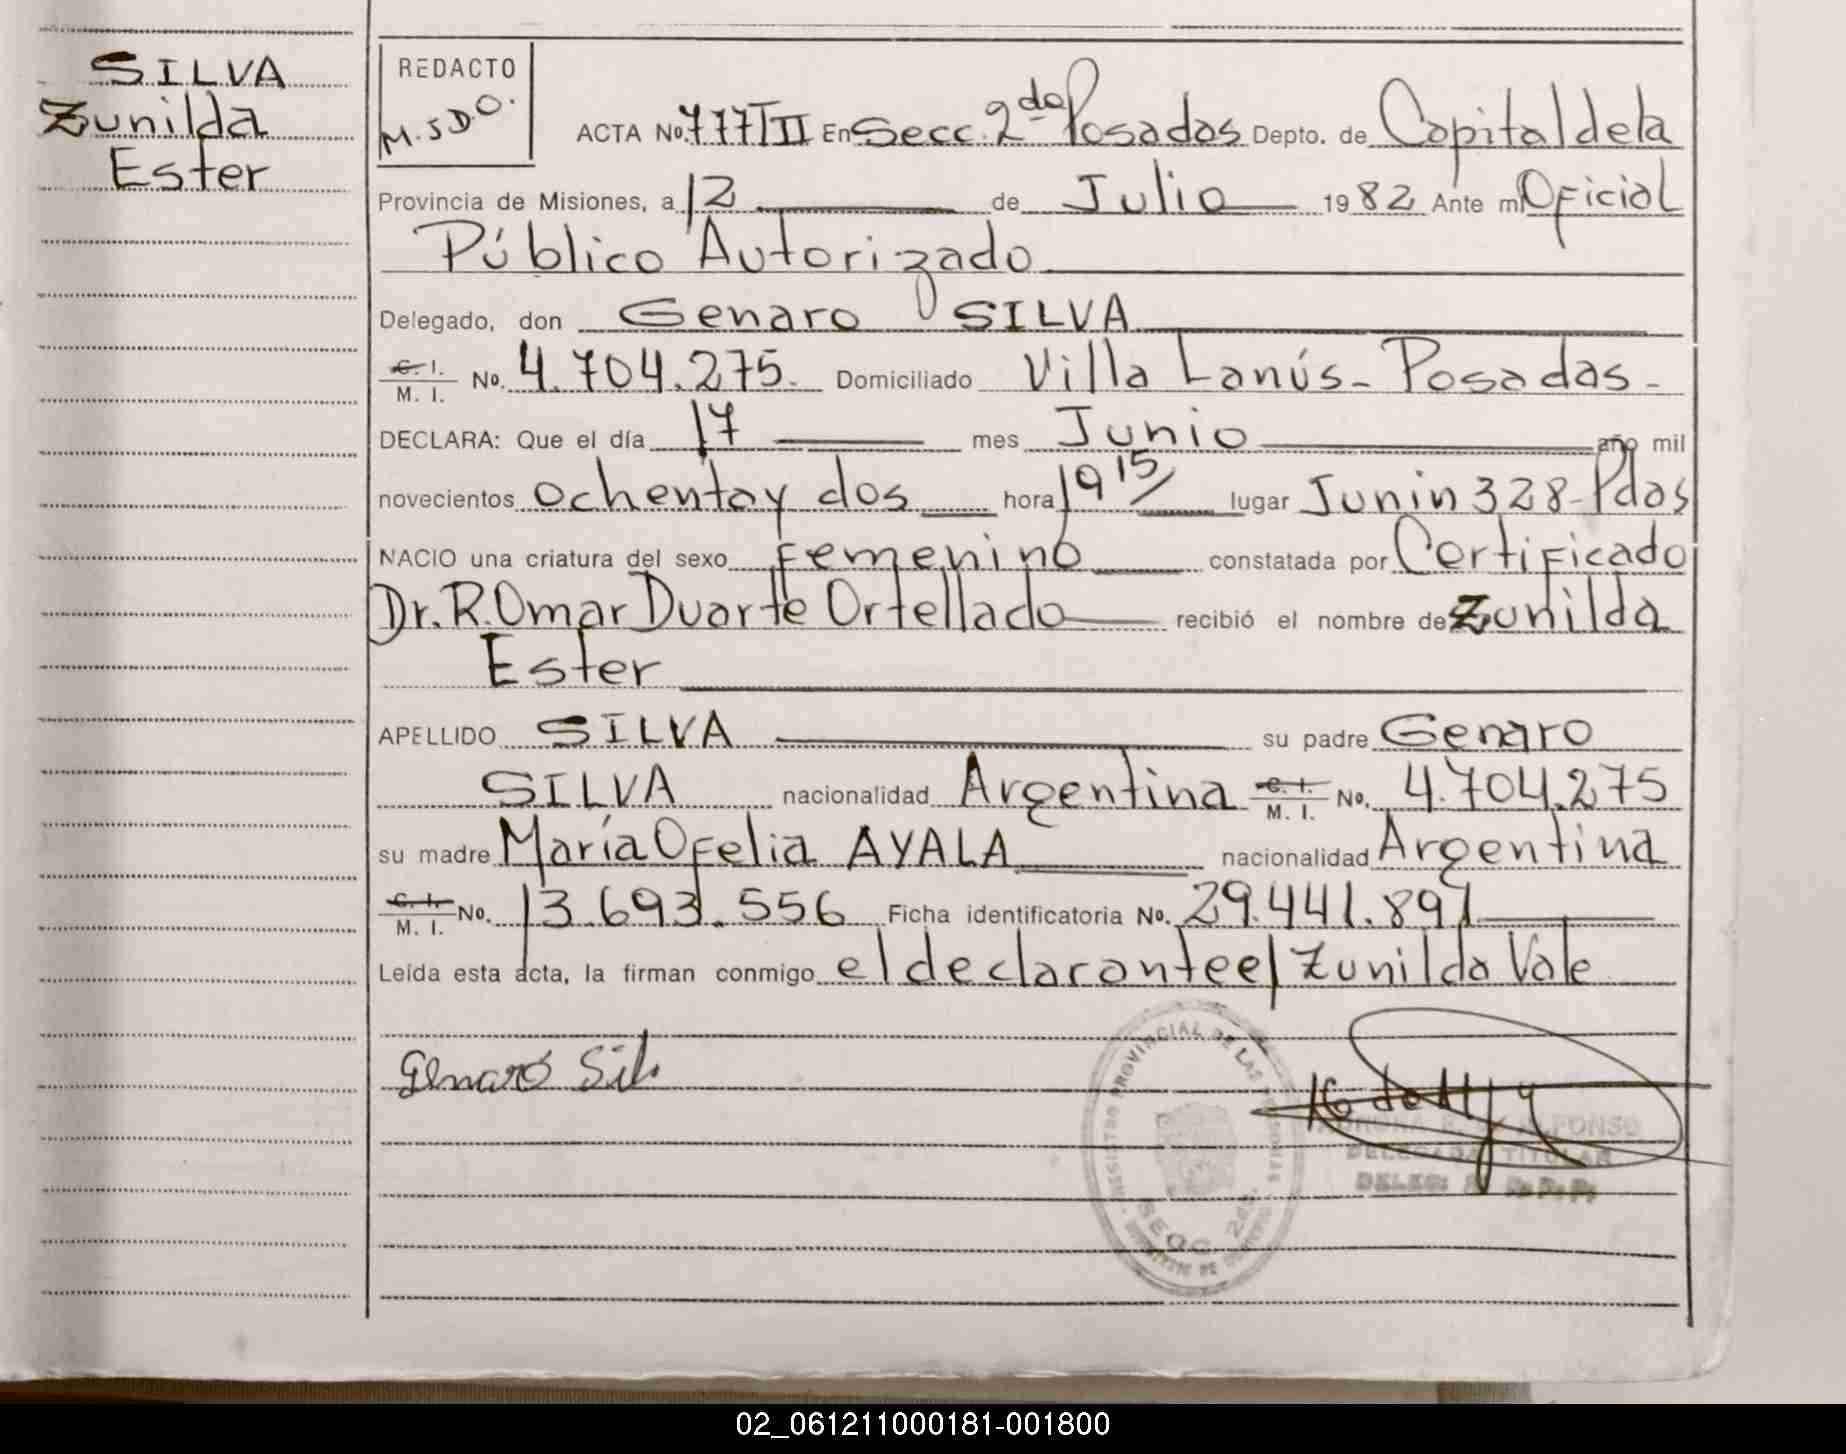 SILVA
Zunilda
Ester
REDACTO
M.S.D.O.
ACTA No. 777/II En Secc. 2da Posadas Depto. de Capital de la
Provincia de Misiones, a 12 de Julio 1982 Ante mi Oficial
Público Autorizado
Delegado, don Genaro SILVA
C. I.
M. I. No. 4.704.275. Domiciliado Villa Lanús - Posadas -
DECLARA: Que el día 17 mes Junio año mil
novecientos ochenta y dos hora 19 15/ lugar Junin 328 - Pdas
NACIO una criatura del sexo femenino constatada por Certificado
Dr. R. Omar Duarte Ortellado recibió el nombre de Zunilda
Ester
APELLIDO SILVA su padre Genaro
SILVA nacionalidad Argentina C. I. M. I. No. 4.704.275
su madre María Ofelia AYALA nacionalidad Argentina
C. I. M. I. No. 13.693.556 Ficha identificatoria No. 29.441.891
Leída esta acta, la firman conmigo el declarante e/ Zunilda Vale
Genaro Sil
REGISTRO PROVINCIAL DE LAS PERSONAS
SECC. 2da.
ALFONSO
DELEGADA TITULAR
02_061211000181-001800